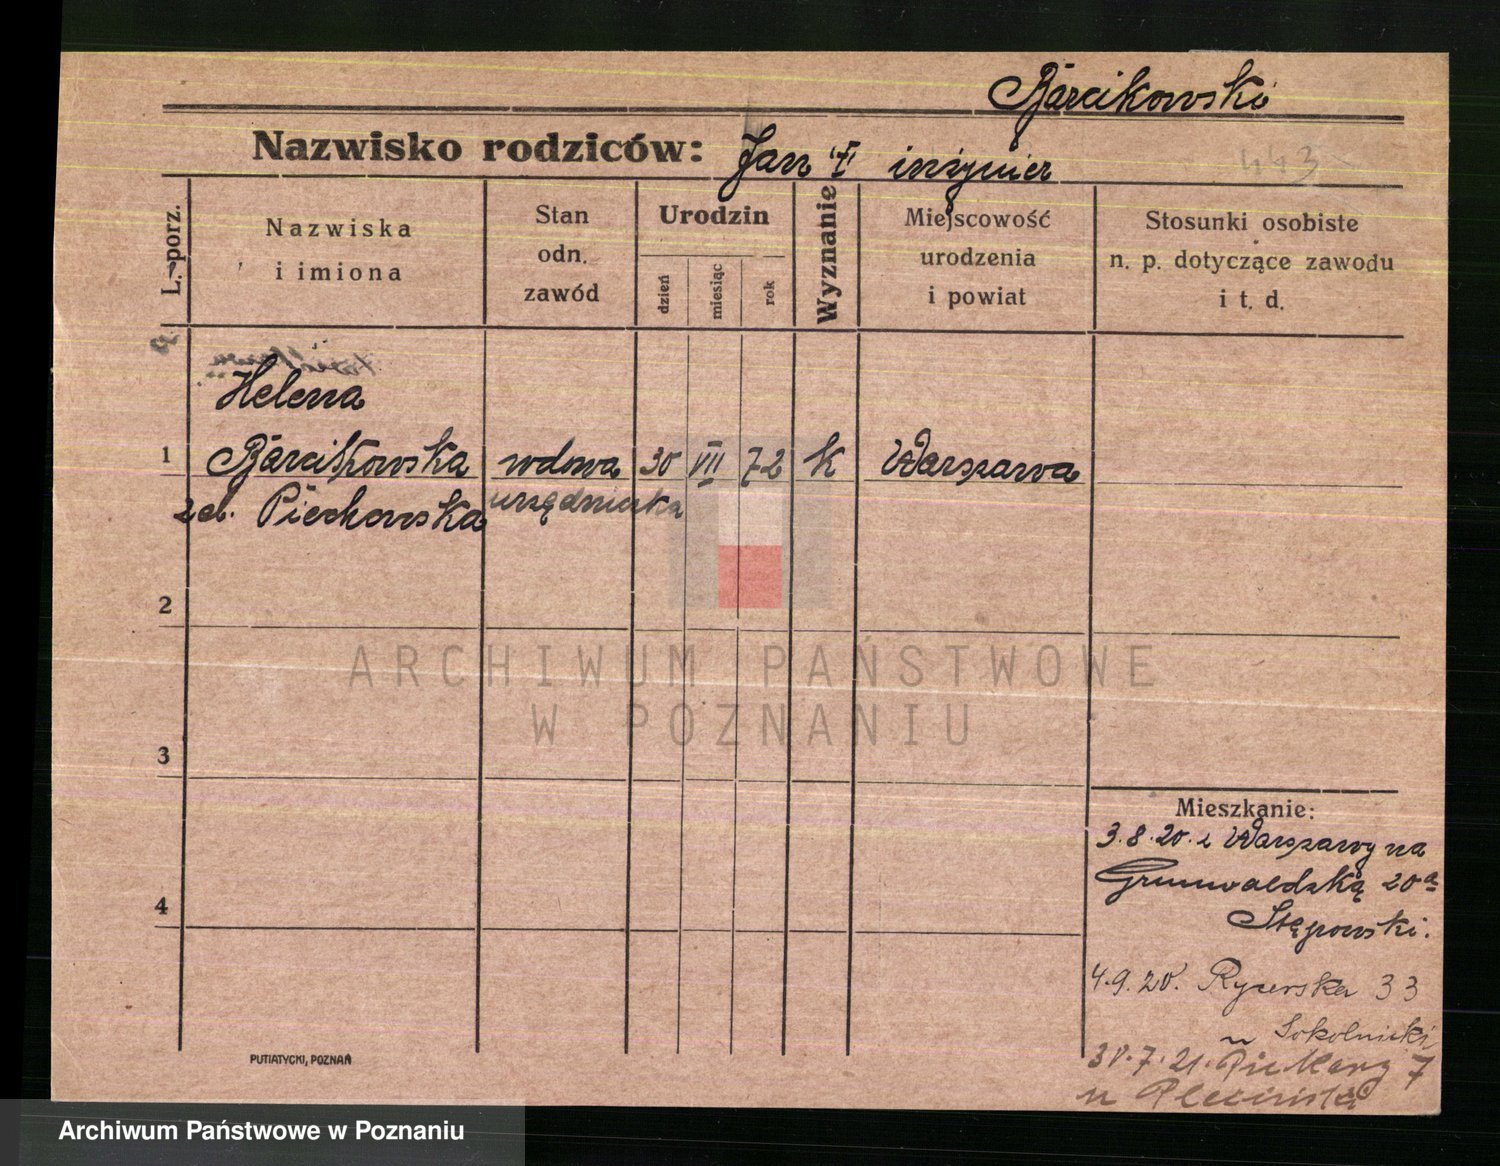 Barcikowski
Nazwisko rodziców: Jan inżynier
443
L. porz.
Nazwiska
i imiona
Stan
odn.
zawód
Urodzin
dzień
miesiąc
rok
Wyznanie
Miejscowość
urodzenia
i powiat
Stosunki osobiste
n. p. dotyczące zawodu
i t. d.
Helena
1 Barcikowska wdowa 30 VII 72 k Warszawa
zd. Piechowska urzędniczka
2
ARCHIWUM PAŃSTWOWE
W POZNANIU
3
4
Mieszkanie:
3.8.20. z Warszawy na
Grunwaldzką 20a
Stęgowski.
4.9.20. Rycerska 33
u Sokolnicki
30.7.21. Piekary 7
u
PUTIATYCKI, POZNAŃ
Archiwum Państwowe w Poznaniu